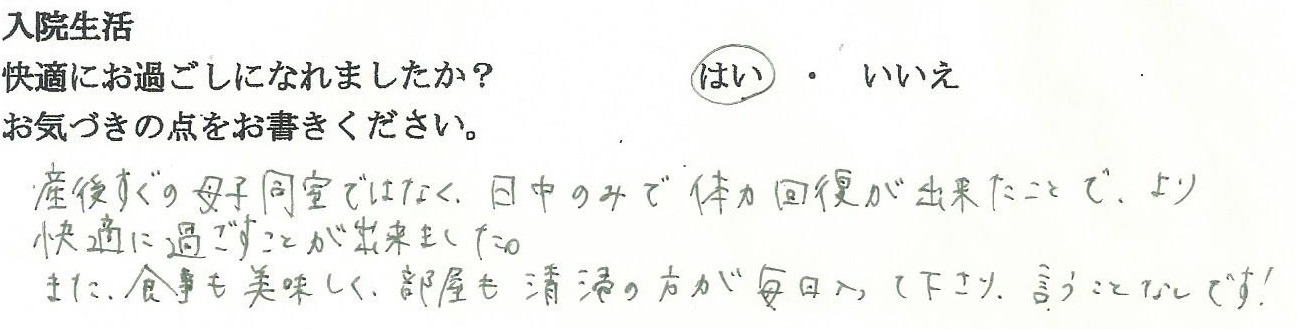 入院生活
快適にお過ごしになれましたか？ はい ・ いいえ
お気づきの点をお書きください。
産後すぐの母子同室ではなく、日中のみで体力回復が出来たことで、より
快適に過ごすことが出来ました。
また、食事も美味しく、部屋も清掃の方が毎日入って下さり、言うことなしです!